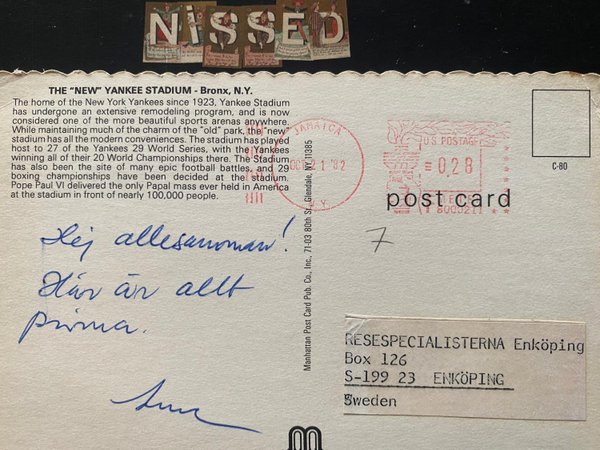 NiSSED
THE "NEW" YANKEE STADIUM - Bronx, N.Y.
The home of the New York Yankees since 1923, Yankee Stadium
has undergone an extensive remodeling program, and is now
considered one of the more beautiful sports arenas anywhere.
While maintaining much of the charm of the "old" park, the "new"
stadium has all the modern conveniences. The stadium has played
host to 27 of the Yankees 29 World Series, with the Yankees
winning all of their 20 World Championships there. The Stadium
has also been the site of many epic football battles, and 29
boxing championships have been decided at the stadium.
Pope Paul VI delivered the only Papal mass ever held in America
at the stadium in front of nearly 100,000 people.
Hej allesamman!
Här är allt
prima.
Manhattan Post Card Pub. Co., Inc., 71-03 80th St., Glendale, NY 11385
JAMAICA
1 '82
N.Y.
U.S. POSTAGE
0.28
post card
C-80
7
RESESPECIALISTERNA Enköping
Box 126
S-199 23 ENKÖPING
Sweden